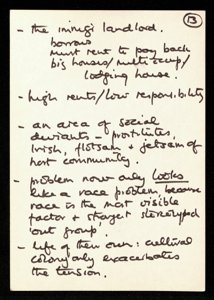 13
- the immig. landlord.
borrows
must rent to pay back
big houses/multi-occup/
lodging house.
- high rents/low responsibility
- an area of social
deviants - prostitutes,
Irish, flotsam & jetsam of
host community.
- problem now only looks
like a race problem because
race is the most visible
factor & strongest stereotyped
'out group'.
- life of their own: cultural
colony only exacerbates
the tension.